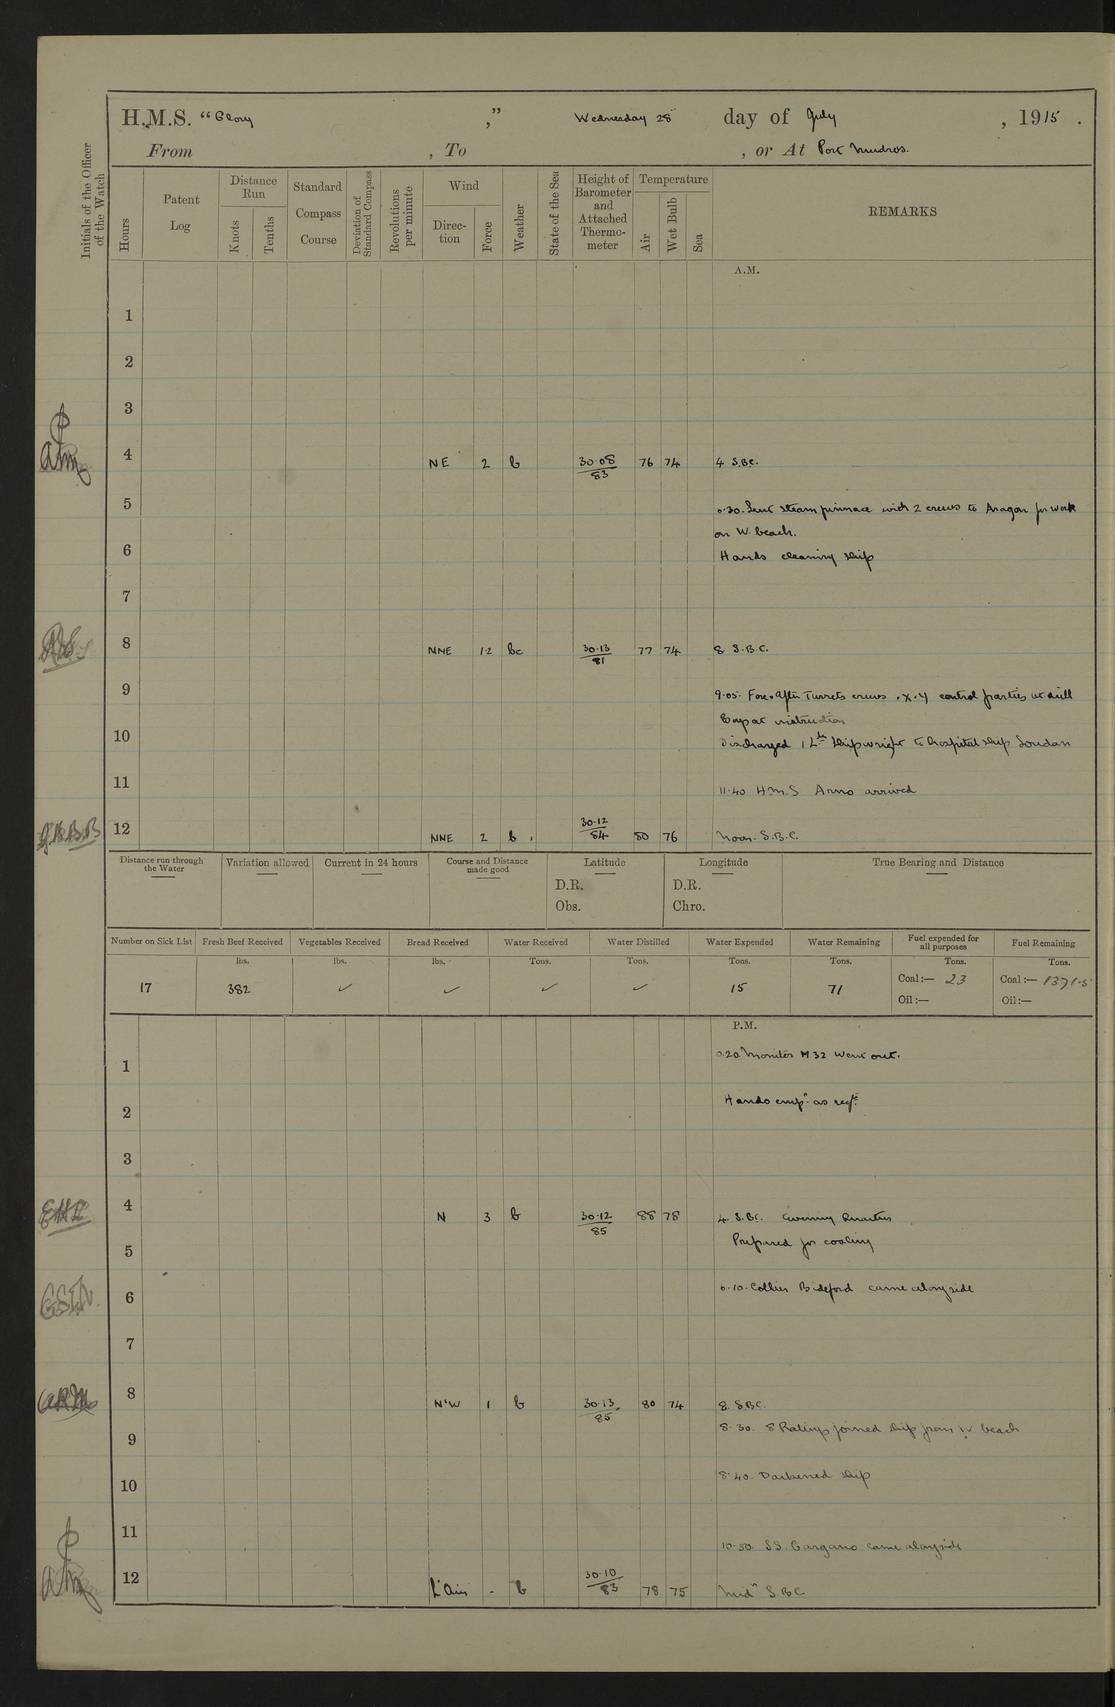 H.M.S. "Glory ," Wednesday 28 day of July , 1915 .
From , To , or At Port Mudros.
Initials of the Officer of the Watch
Hours
Patent Log
Distance Run
Knots
Tenths
Standard Compass Course
Deviation of Standard Compass
Revolutions per minute
Wind
Direction
Force
Weather
State of the Sea
Height of Barometer and Attached Thermometer
Temperature
Air
Wet Bulb
Sea
REMARKS
A.M.
1
2
3
4 NE 2 b 30.08 83 76 74 4 S.B.C.
5 0.30. Sent steam pinnace with 2 crews to Aragon for work
on W. beach.
6 Hands cleaning ship
7
8 NNE 1.2 bc 30.13 81 77 74 8 S.B.C.
9 9.05. Fore & After Turrets crews, X, Y control parties at drill
Boys at instruction
10 Discharged 1 Ldg Shipwright to hospital ship Soudan
11 11.40 H.M.S Arno arrived
12 NNE 2 b 30.12 84 80 76 Noon. S.B.C.
Distance run through the Water
Variation allowed
Current in 24 hours
Course and Distance made good
Latitude
D.R.
Obs.
Longitude
D.R.
Chro.
True Bearing and Distance
Number on Sick List
Fresh Beef Received
Vegetables Received
Bread Received
Water Received
Water Distilled
Water Expended
Water Remaining
Fuel expended for all purposes
Fuel Remaining
lbs. lbs. lbs. Tons. Tons. Tons. Tons. Tons. Tons.
17 382 ✓ ✓ ✓ ✓ 15 71 Coal:— 23 Coal:— 1371.5
Oil:— Oil:—
P.M.
1 0.20. Monitor M32 went out.
2 Hands emp. as req.
3
4 N 3 b 30.12 85 88 78 4 S.B.C. Evening Quarters
5 Prepared for coaling
6 6.10. Collier Bideford came alongside
7
8 N'W 1 b 30.13 85 80 74 8. S.B.C.
9 8.30. 8 Ratings joined ship from W beach
10 8.40. Darkened ship
11 10.50. SS. Gargano came alongside
12 L'Airs - b 30.10 83 78 75 Mid't S.B.C.